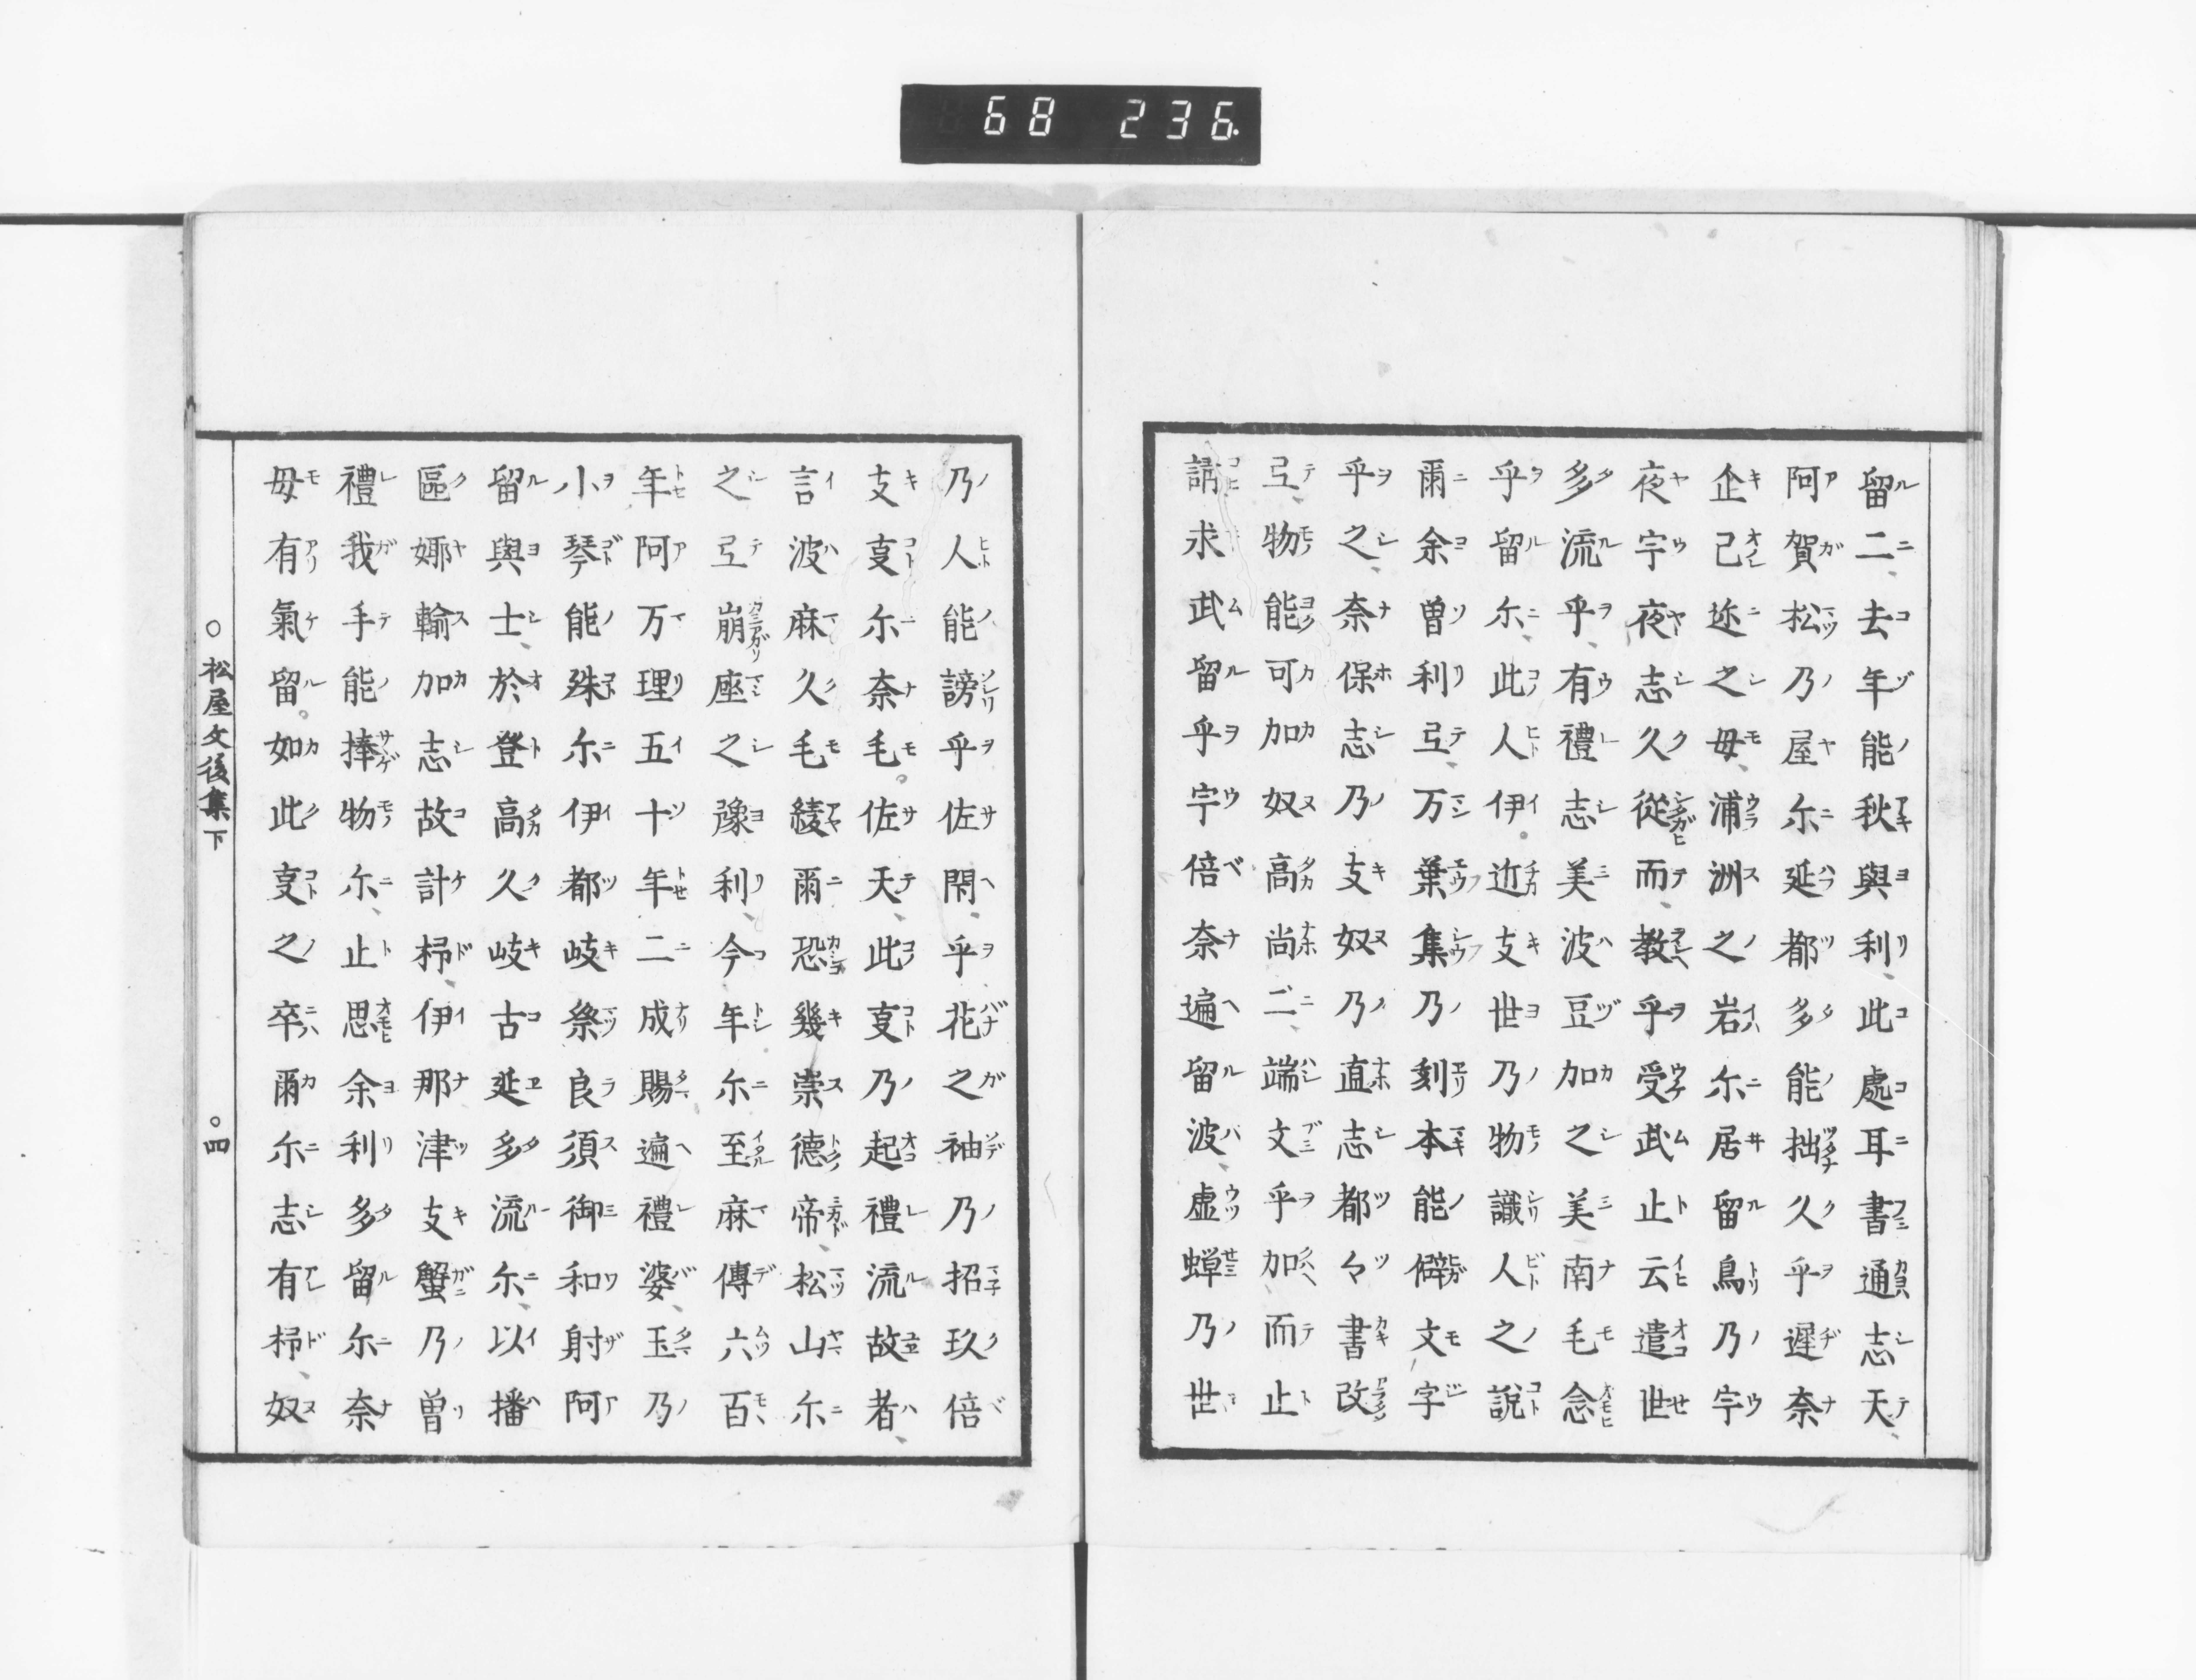 68 236
留二、去年能秋與利、此處耳書通志天、
阿賀松乃屋尓延都多能拙久乎遲奈
企己迩之毋、浦洲之岩尓居留鳥乃宇
夜宇夜志久從而、教乎受武止云遣世
多流乎有禮志美波豆加之美南毛念
乎留尓、此人伊。近支世乃物識人之說
爾余曽利弖、万葉集乃刻本能僻文字
乎之、奈保志乃支奴乃直志都々書改
弖、物能可加奴高尚二、端文乎加而止
請求武留乎宇倍奈遍留波、虛蟬乃世
乃人能謗乎佐閇乎花之袖乃招玖倍
支叓尓奈毛。佐天、此叓乃起禮流故者、
言波麻久毛綾爾恐幾崇德帝、松山尓
之弖崩座之豫利、今年尓至麻傳六百
年阿万理五十年二成賜遍禮婆、玉乃
小琴能殊尓伊都岐祭良須御和射阿
留與士、於登高久岐古延多流尓、以播
區娜輸加志故計枵、伊那津支蟹乃曽
禮我手能捧物尓、止思余利多留尓奈
毋有氣留。如此叓之卒爾尓志有枵、奴
○松屋文後集下 ○四